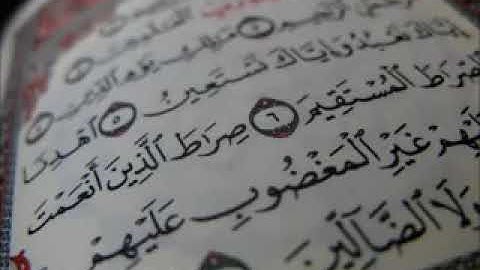 ٱلرَّحِيمِ مَٰلِكِ يَوْمِ ٱلدِّينِ
إِيَّاكَ نَعْبُدُ وَإِيَّاكَ نَسْتَعِينُ ٥ ٱهْدِنَا
ٱلصِّرَٰطَ ٱلْمُسْتَقِيمَ ٦ صِرَٰطَ ٱلَّذِينَ أَنْعَمْتَ
عَلَيْهِمْ غَيْرِ ٱلْمَغْضُوبِ عَلَيْهِمْ
وَلَا ٱلضَّآلِّينَ